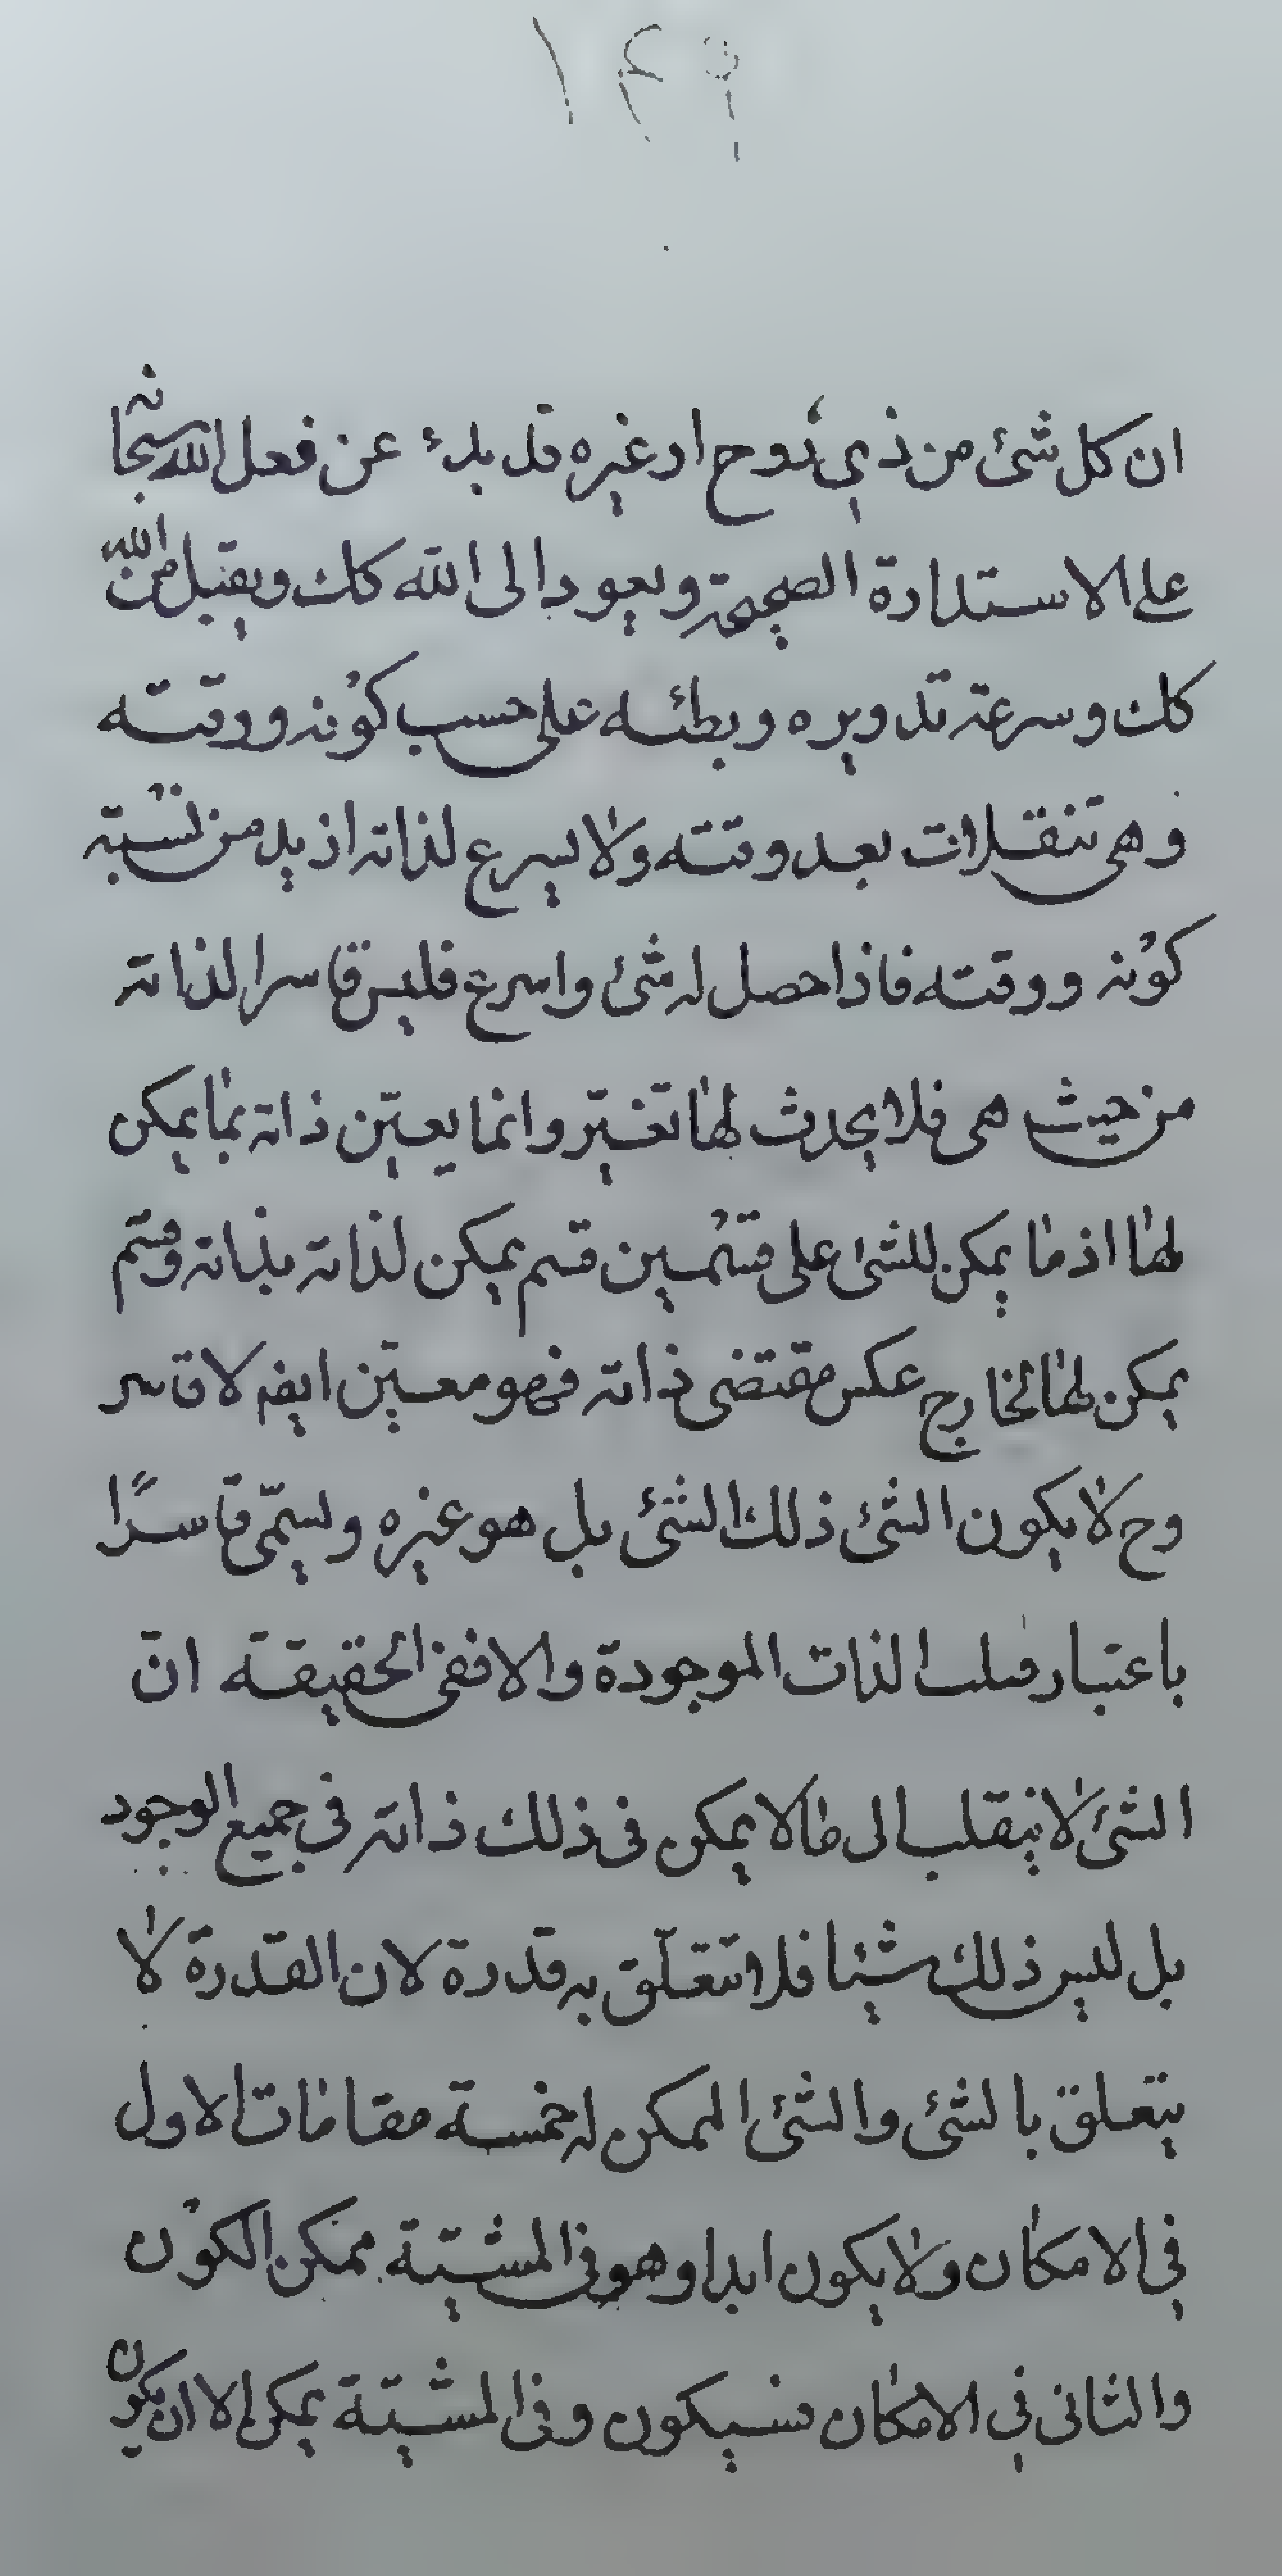 ١٤٩
ان كل شئ من ذي روح او غيره قد بدء عن فعل الله سبحانه
على الاستدارة الصحيحة ويعود الى الله كك ويقبل من الله
كك وسرعة تدويره وبطئه على حسب كونه ووقته
وهي تنقلات بعد وقته ولا يسرع لذاته ازيد من نسبته
كونه ووقته فاذا حصل له شئ واسرع فليس قاسرا لذاته
من حيث هى فلا يحدث لها تغيّر وانما يعيّن ذاته بما يمكن
لها اذ ما يمكن للشئ على قسمين قسم يمكن لذاته بذاته وقسم
يمكن لها لخارج عكس مقتضى ذاته فهو معيّن ايضا لا قاسر
وح لا يكون الشئ ذلك الشئ بل هو غيره ويسمّى قاسرًا
باعتبار قلب الذات الموجودة والا ففى الحقيقة انّ
الشئ لا ينقلب الى ما لا يمكن فى ذلك ذاته فى جميع الوجود
بل ليس ذلك شيئا فلا تتعلّق به قدرة لان القدرة لا
يتعلق بالشئ والشئ الممكن له خمسة مقامات الاول
في الامكان ولا يكون ابدا وهو فى المشيّة ممكن الكون
والثانى في الامكان فسيكون وفى المشيّة يمكن الا ان يكون